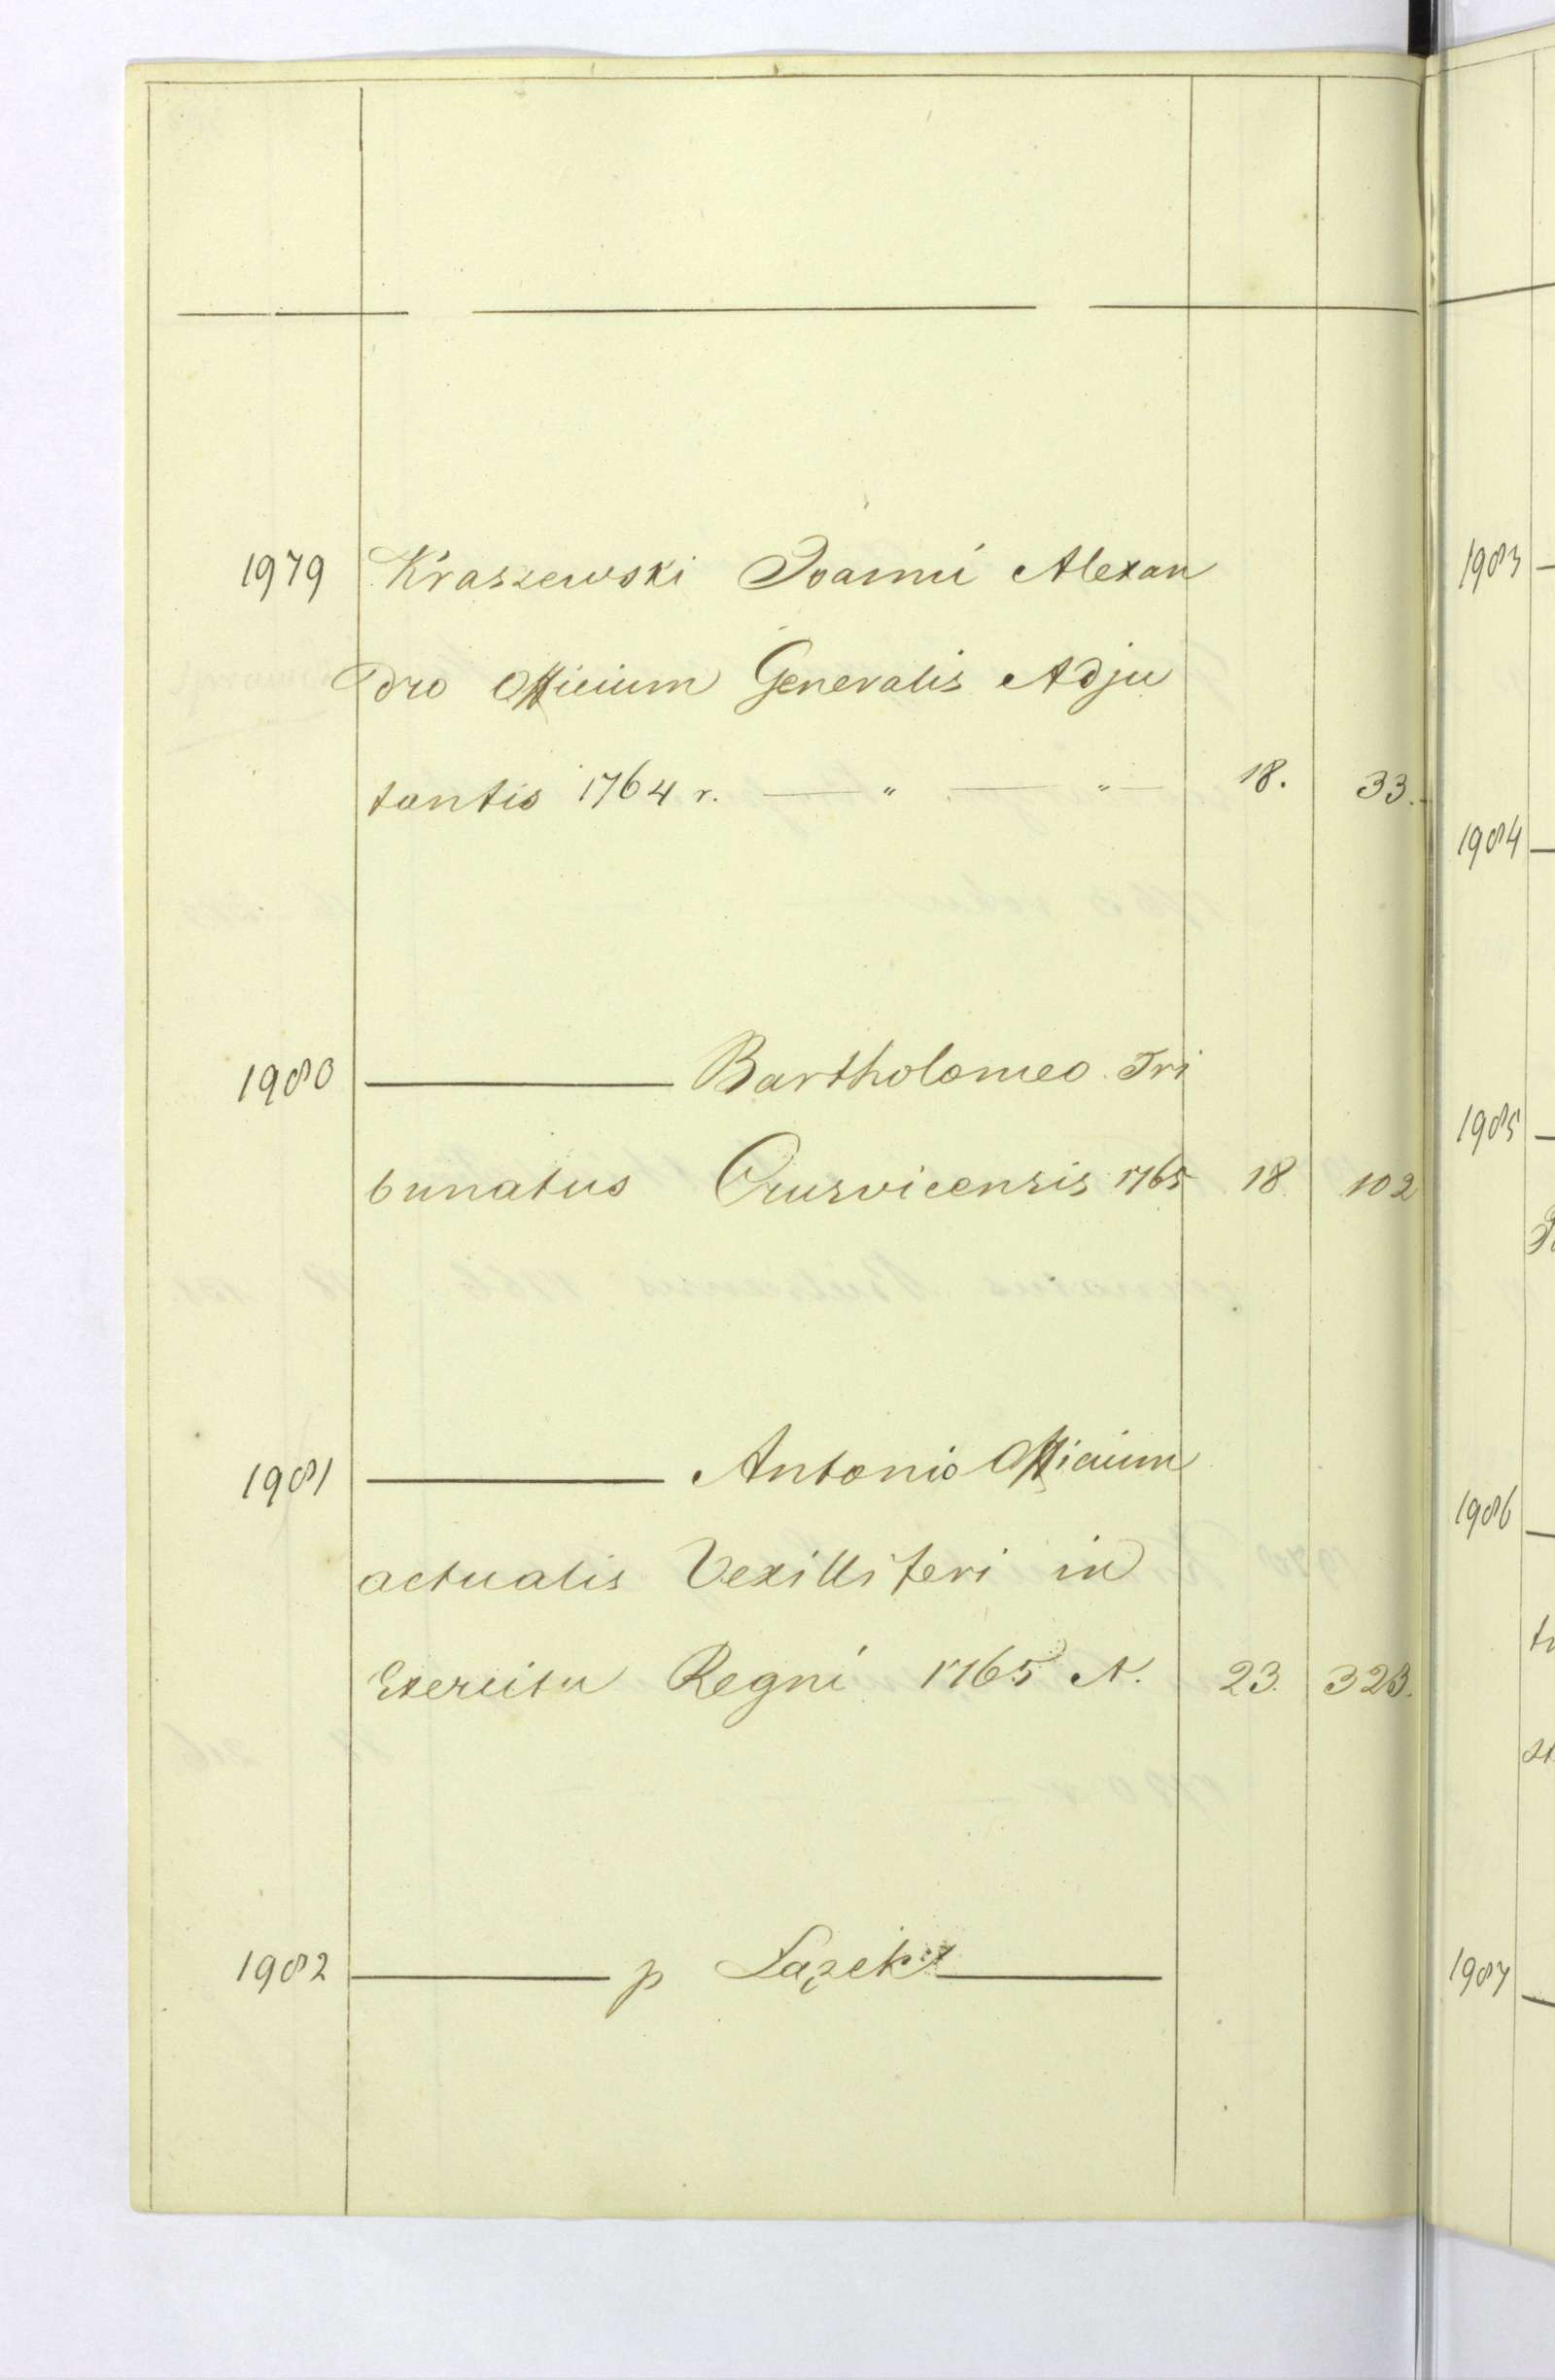 1979 Kraszewski Joanni Alexan
dro Officium Generalis Adju
tantis 1764 r. — " — " — 18. 33.
1980 ——— Bartholomeo Tri
bunatus Crusvicensis 1765 18 102
1981 ——— Antonio Officium
actualis Vexilliferi in
Exercitu Regni 1765 A. 23. 323.
1982 ——— p ———
1983
1984
1985
1986
1987